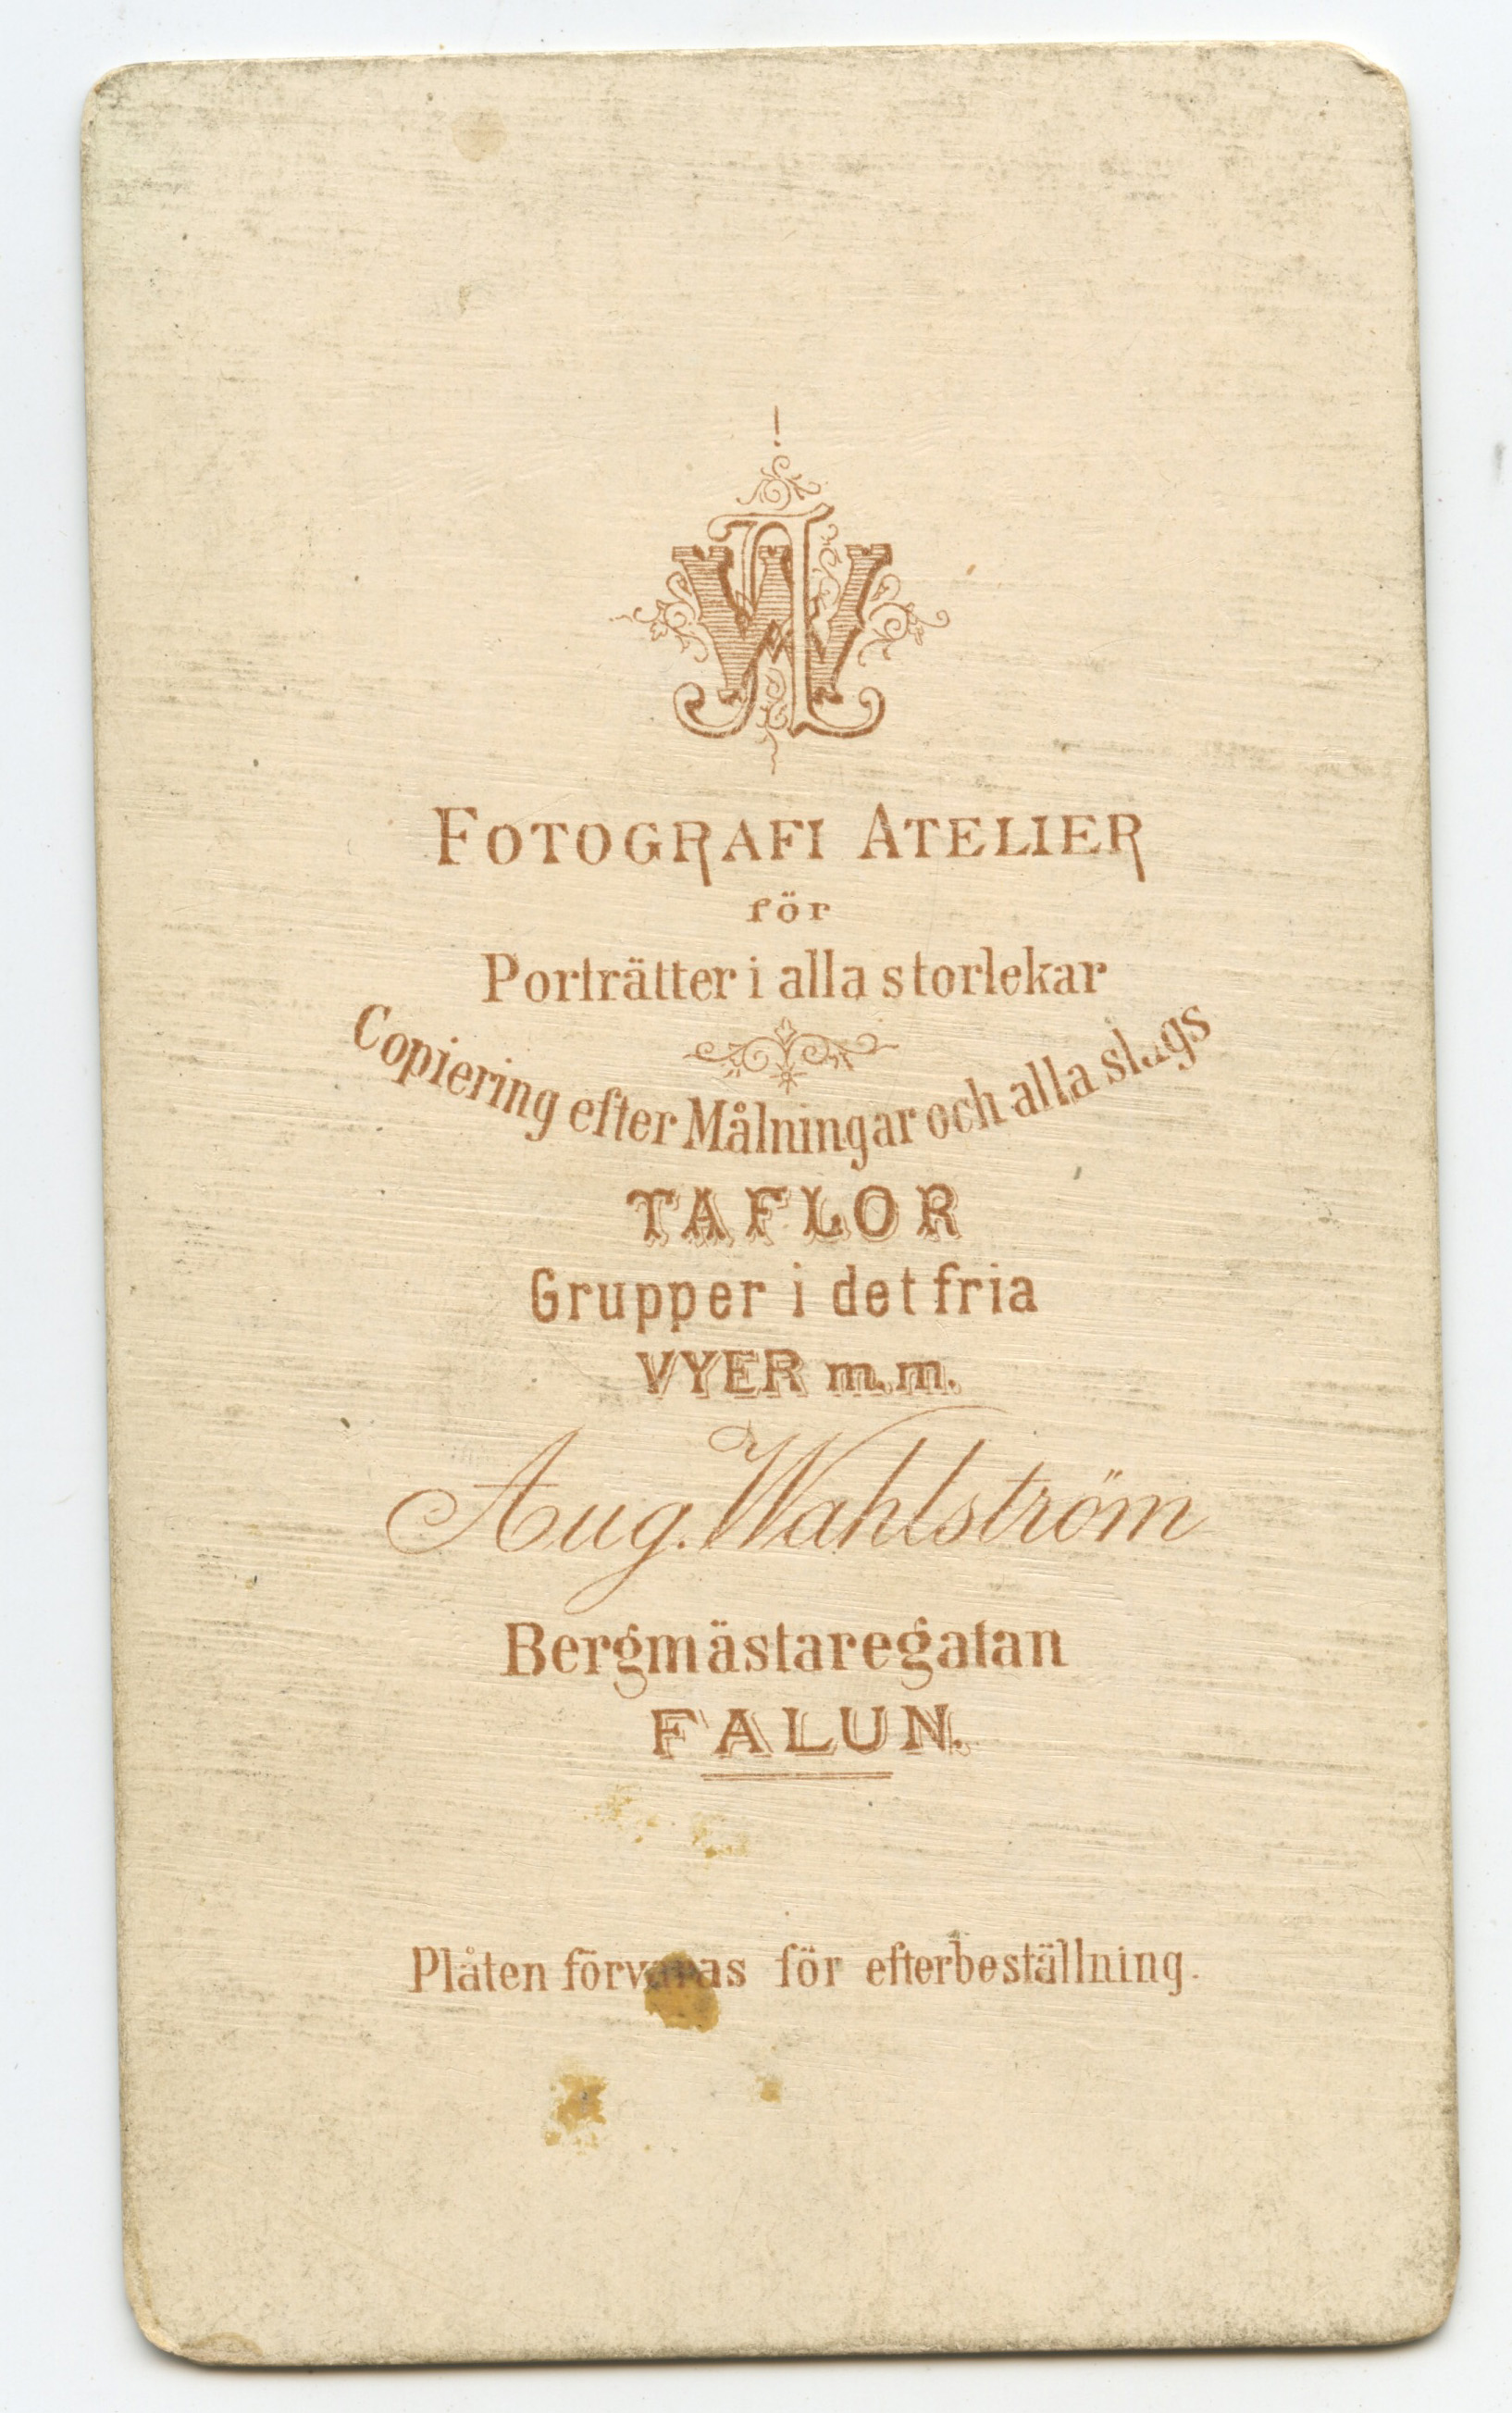 AW
FOTOGRAFI ATELIER
för
Porträtter i alla storlekar
Copiering efter Målningar och alla slags
TAFLOR
Grupper i det fria
VYER m.m.
Aug. Wahlström
Bergmästaregatan
FALUN.
Plåten förvaras för efterbeställning.